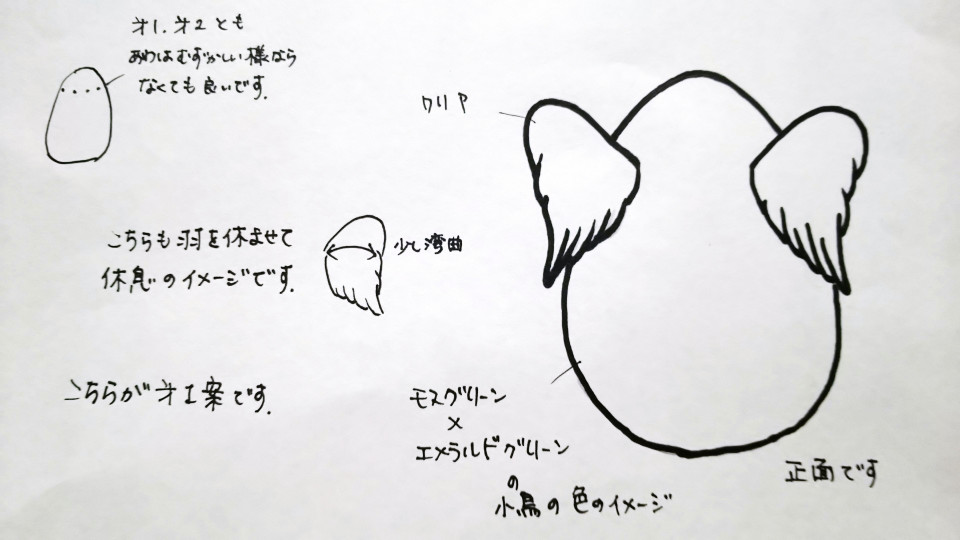 オ1.オ2とも
あわはむずかしい様なら
なくても良いです.
クリア
こちらも羽を休ませて
休息のイメージです.
少し湾曲
こちらがオ1案です.
モスグリーン
×
エメラルドグリーン
の
小鳥の色のイメージ
正面です